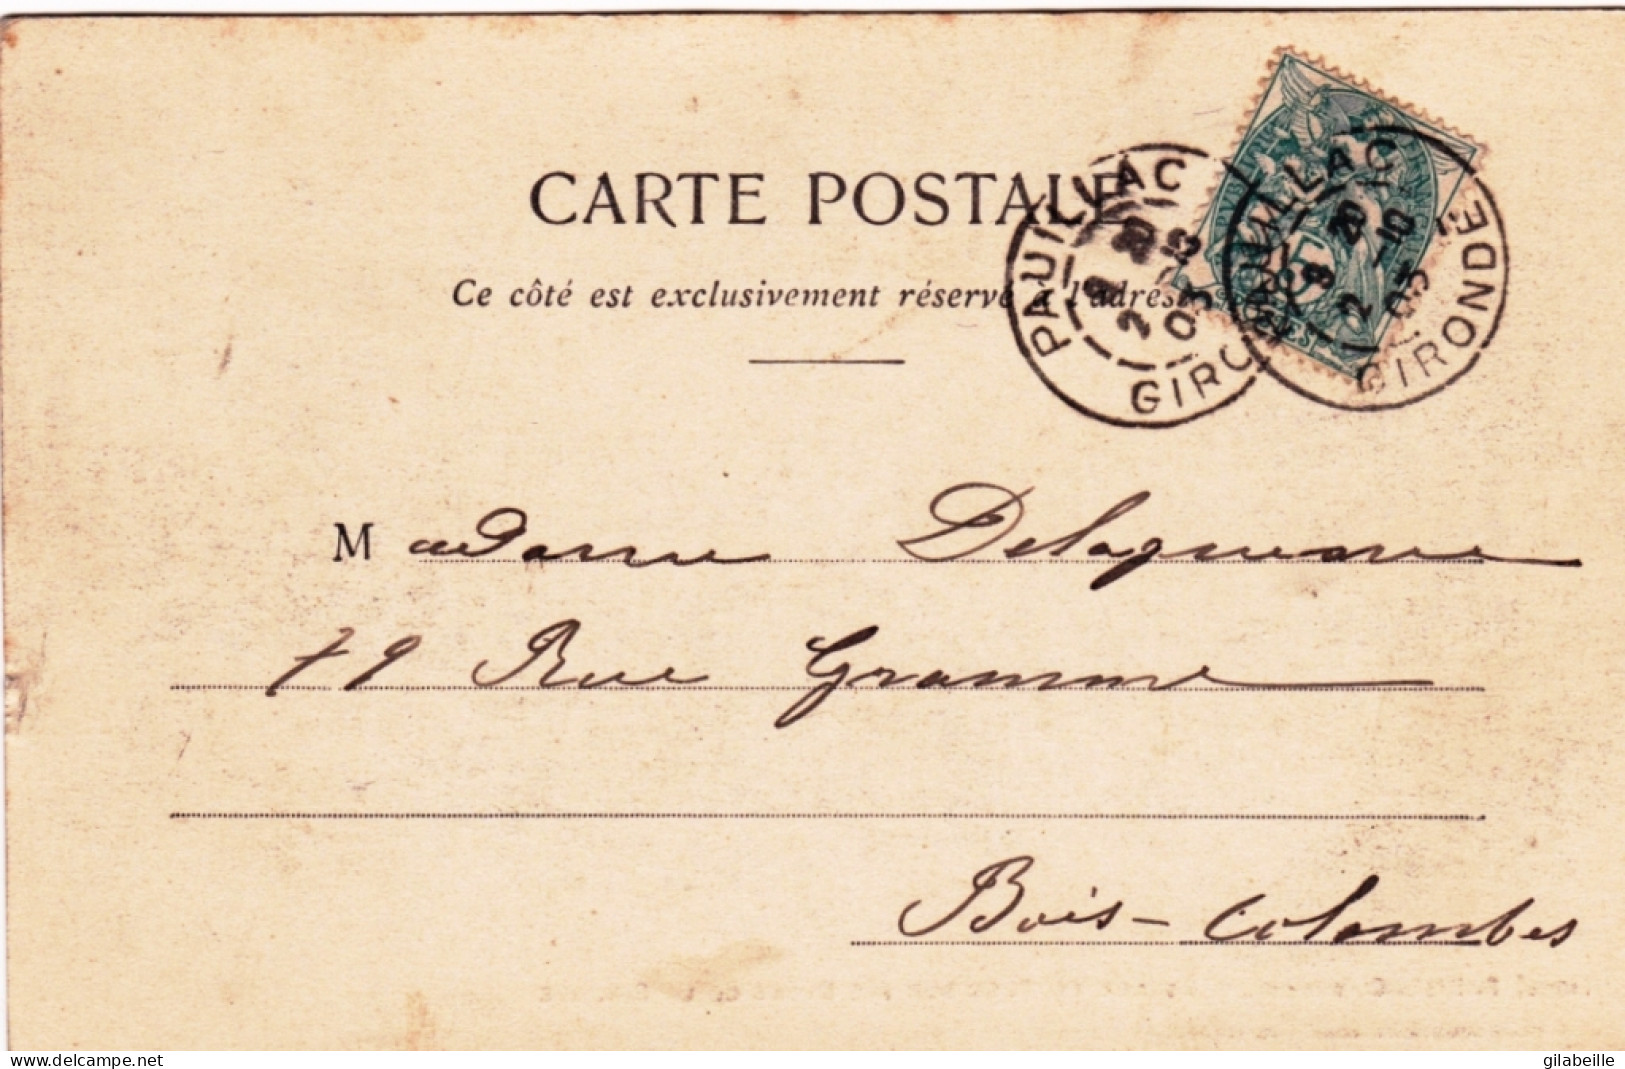 CARTE POSTALE
Ce côté est exclusivement réservé à l'adresse
PAUILLAC
20
2 -10
03
GIRONDE
PAUILLAC
20
2 -10
03
GIRONDE
5
Madame
79 Rue Gramme
Bois-Colombes
www.delcampe.net
gilabeille